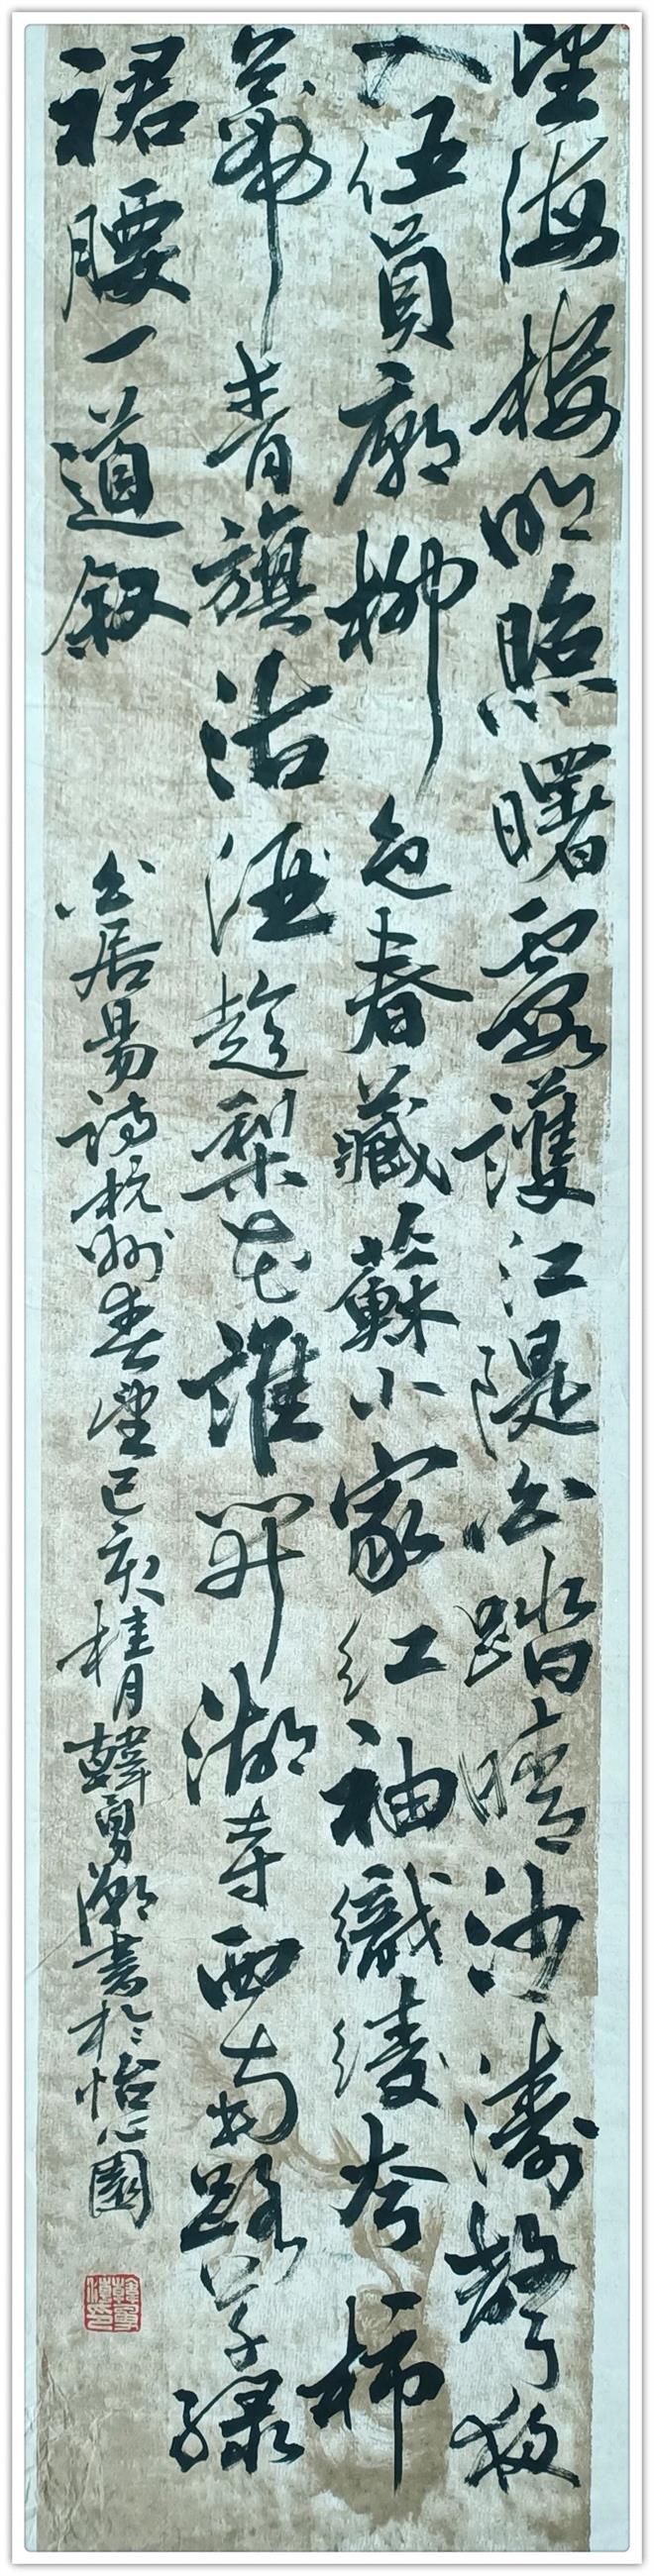 望海樓明照曙霞護江隄白踏晴沙濤聲夜
入伍員廟柳色春藏蘇小家紅袖織綾夸柿
蒂青旗沽酒趁梨花誰開湖寺西南路草綠
裙腰一道斜
白居易詩杭州春望己亥桂月韓勇潮書於怡心園